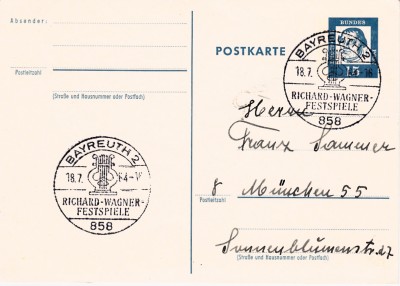 Absender:
POSTKARTE
BUNDES
15
BAYREUTH 2
18.7.
-16
RICHARD-WAGNER-
FESTSPIELE
858
Postleitzahl
(Straße und Hausnummer oder Postfach)
Herrn
Franz Sammer
8 München 55
Postleitzahl
Sonnenblumenstr. 27
(Straße und Hausnummer oder Postfach)
BAYREUTH 2
18.7. 64-16
RICHARD-WAGNER-
FESTSPIELE
858